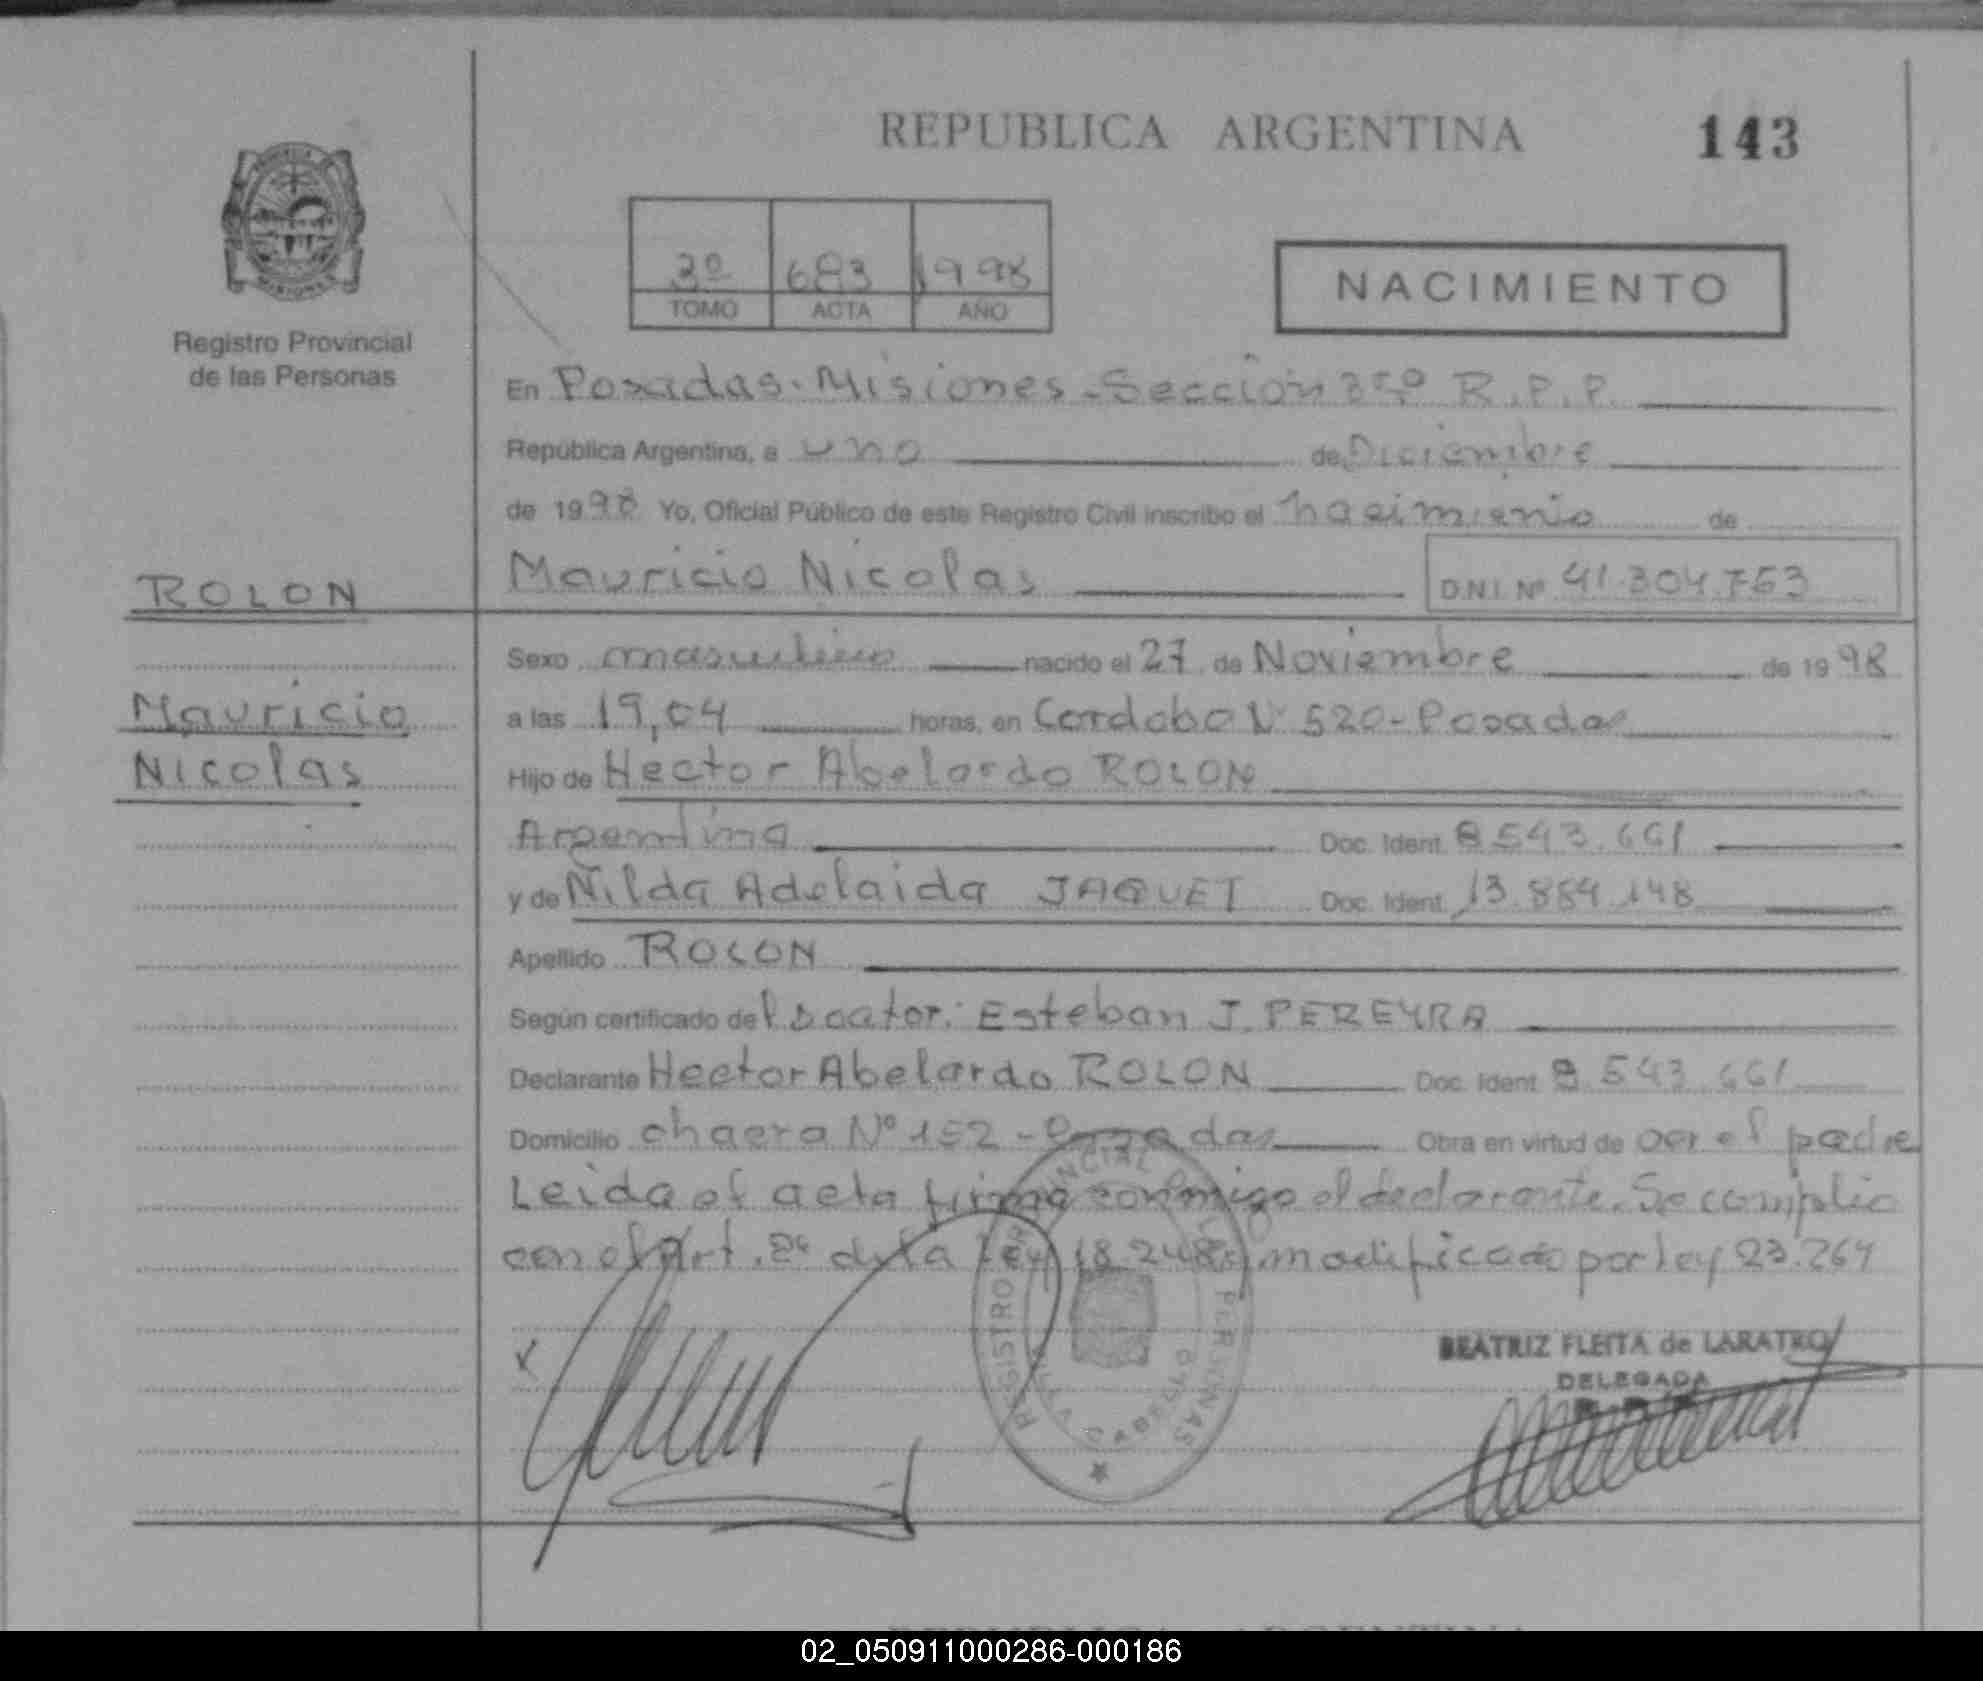 REPUBLICA ARGENTINA 143
3º 683 1998
TOMO ACTA AÑO
NACIMIENTO
Registro Provincial
de las Personas
En Posadas. Misiones - Sección 3º R.P.P.
República Argentina, a uno de Diciembre
de 1998 Yo, Oficial Público de este Registro Civil inscribo el nacimiento de
ROLON
Mauricio Nicolas D.N.I. Nº 41.304.753
Sexo masculino nacido el 27 de Noviembre de 1998
Mauricio
a las 19,04 horas, en Cordoba Nº 520 - Posadas
Nicolas
Hijo de Hector Abelardo ROLON
Argentina Doc. Ident. 8.543.661
y de Nilda Adelaida JAQUET Doc. Ident. 13.884.148
Apellido ROLON
Según certificado del Doctor: Esteban J. PEREYRA
Declarante Hector Abelardo ROLON Doc. Ident. 8.543.661
Domicilio chacra Nº 152 - Posadas Obra en virtud de ser el padre
Leida el acta firma conmigo el declarante. Se complio
con el Art. 2º de la Ley 18.248, modificado por ley 23.264
REGISTRO PROVINCIAL DE LAS PERSONAS
VILLA CABELLO
BEATRIZ FLEITA de LARATRO
DELEGADA
02_050911000286-000186